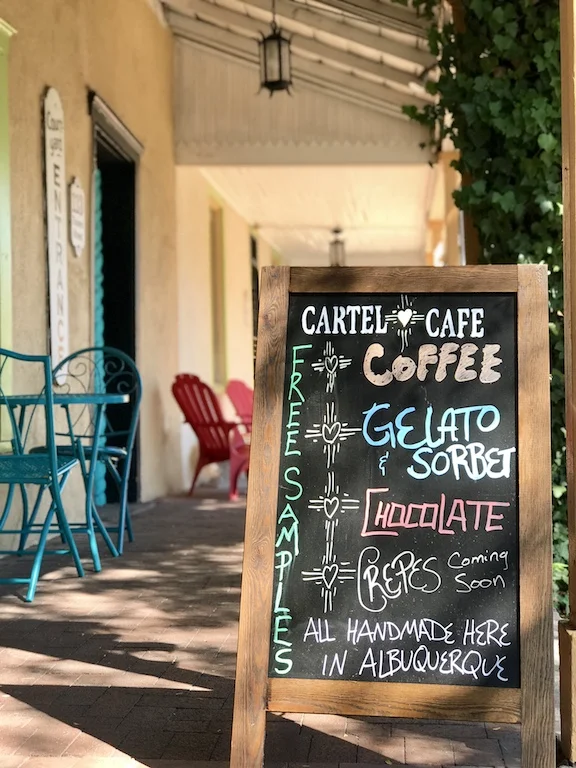 Court
yard
ENTRANCE
CARTEL CAFE
FREE SAMPLES
COFFEE
GELATO
& SORBET
CHOCOLATE
CREPES Coming
Soon
ALL HANDMADE HERE
IN ALBUQUERQUE